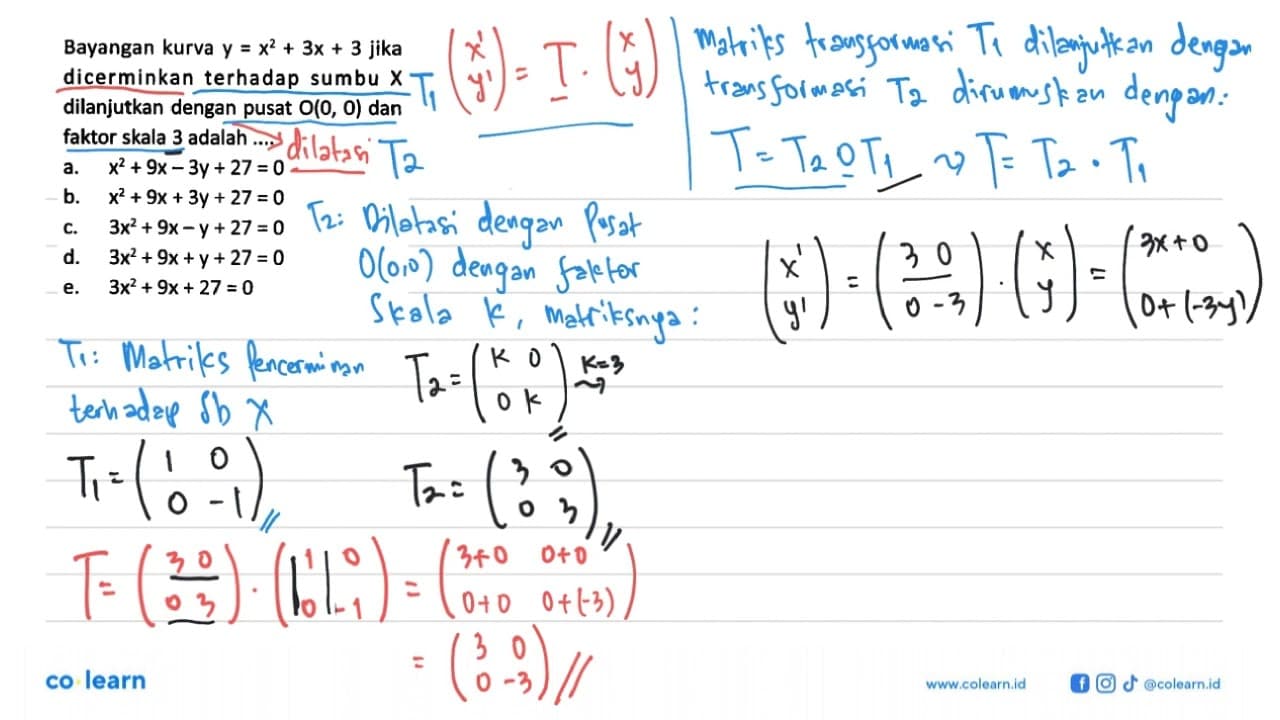 Bayangan kurva y = x² + 3x + 3 jika
dicerminkan terhadap sumbu X
dilanjutkan dengan pusat O(0, 0) dan
faktor skala 3 adalah ....
a. x² + 9x – 3y + 27 = 0
b. x² + 9x + 3y + 27 = 0
c. 3x² + 9x – y + 27 = 0
d. 3x² + 9x + y + 27 = 0
e. 3x² + 9x + 27 = 0
T₁
dilatasi T₂
(x' y') = T · (x y)
Matriks transformasi T₁ dilanjutkan dengan
transformasi T₂ dirumuskan dengan:
T = T₂ o T₁ ⤳ T = T₂ · T₁
T₂: Dilatasi dengan Pusat
O(0,0) dengan faktor
Skala k, matriksnya:
T₂ = (k 0 0 k) k=3 ⤳
T₂ = (3 0 0 3) //
T₁: Matriks Pencerminan
terhadap Sb X
T₁ = (1 0 0 -1) //
T = (3 0 0 3) · (1 0 0 -1) = (3+0 0+0 0+0 0+(-3))
= (3 0 0 -3) //
(x' y') = (3 0 0 -3) · (x y) = (3x+0 0+(-3y))
co learn
www.colearn.id
@colearn.id